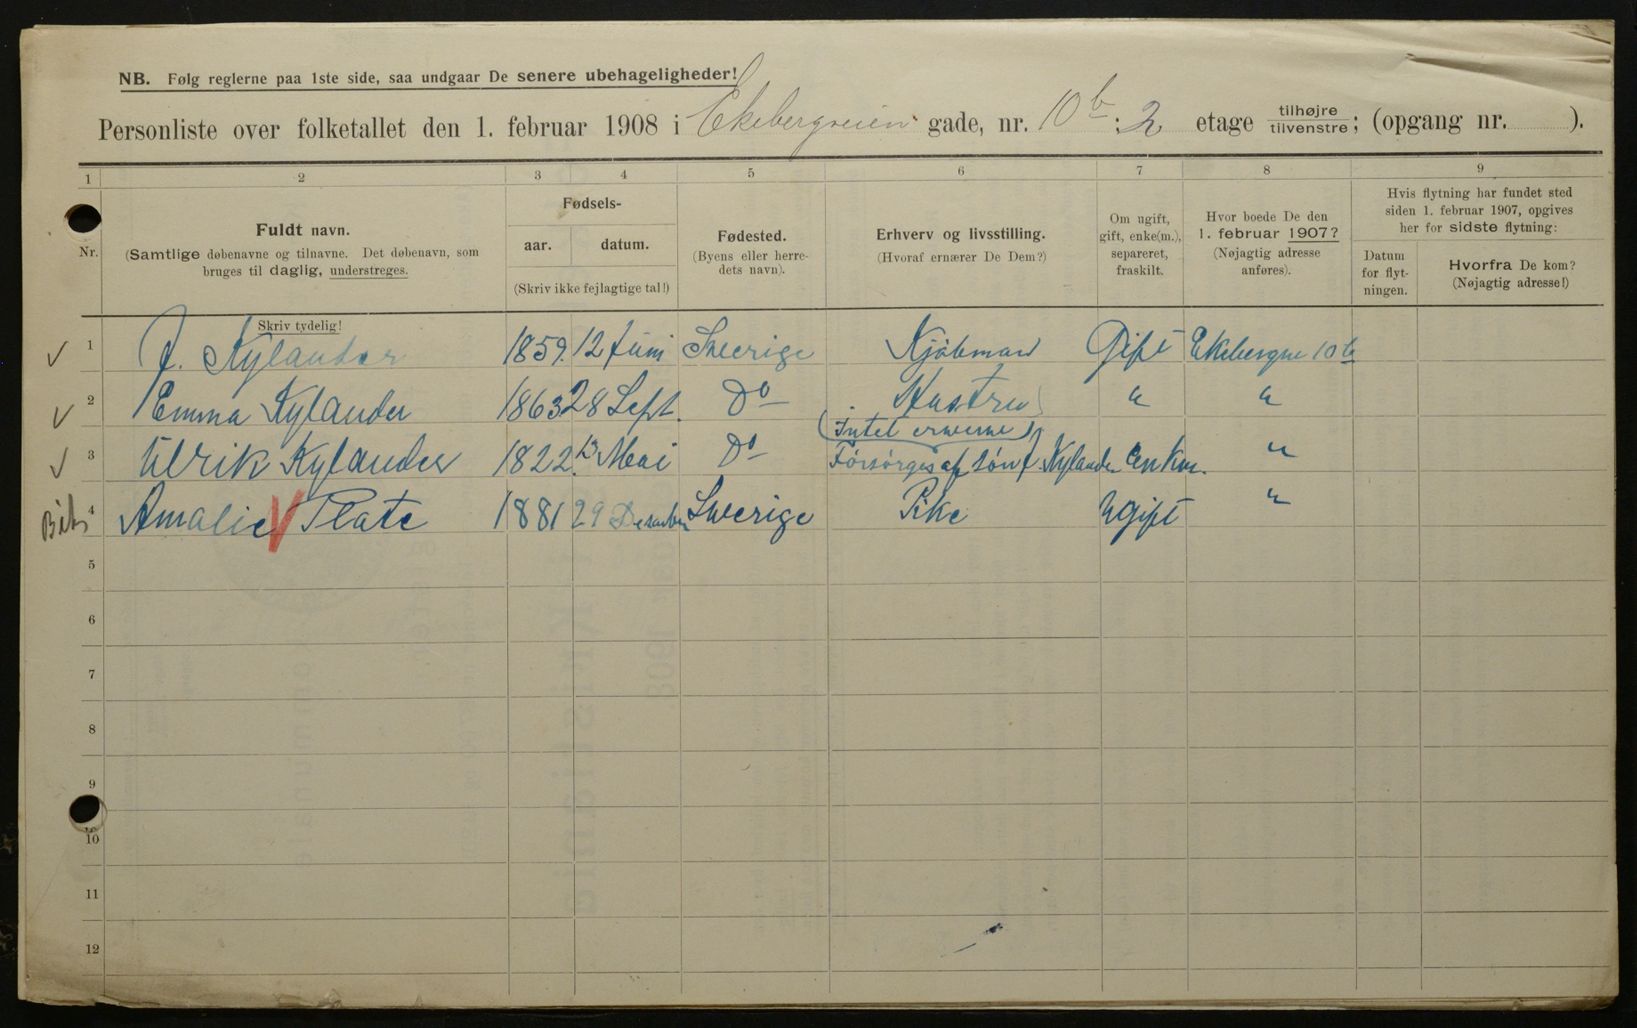 NB. Følg reglerne paa 1ste side, saa undgaar De senere ubehageligheder!
Personliste over folketallet den 1. februar 1908 i Ekebergveien gade, nr. 10b : 2 etage tilhøjre tilvenstre; (opgang nr. ).
1 2 3 4 5 6 7 8 9
Nr. Fuldt navn. (Samtlige døbenavne og tilnavne. Det døbenavn, som bruges til daglig, understreges.) Skriv tydelig!
Fødsels- aar. datum. (Skriv ikke fejlagtige tal!)
Fødested. (Byens eller herredets navn).
Erhverv og livsstilling. (Hvoraf ernærer De Dem?)
Om ugift, gift, enke(m.), separeret, fraskilt.
Hvor boede De den 1. februar 1907? (Nøjagtig adresse anføres).
Hvis flytning har fundet sted siden 1. februar 1907, opgives her for sidste flytning:
Datum for flytningen. Hvorfra De kom? (Nøjagtig adresse!)
1 J. Kylander 1859. 12 Juni Sverige Kjöbman Gift Ekebergve 10b
2 Emma Kylander 1863 28 Sept. Do Hustru " "
(Intet erverv)
3 Ulrik Kylander 1822. 13 Mai Do Försörges af sön J. Kylander Enkm. "
4 Amalie Plate 1881 29 Desember Sverige Pike Ugift "
5
6
7
8
9
10
11
12